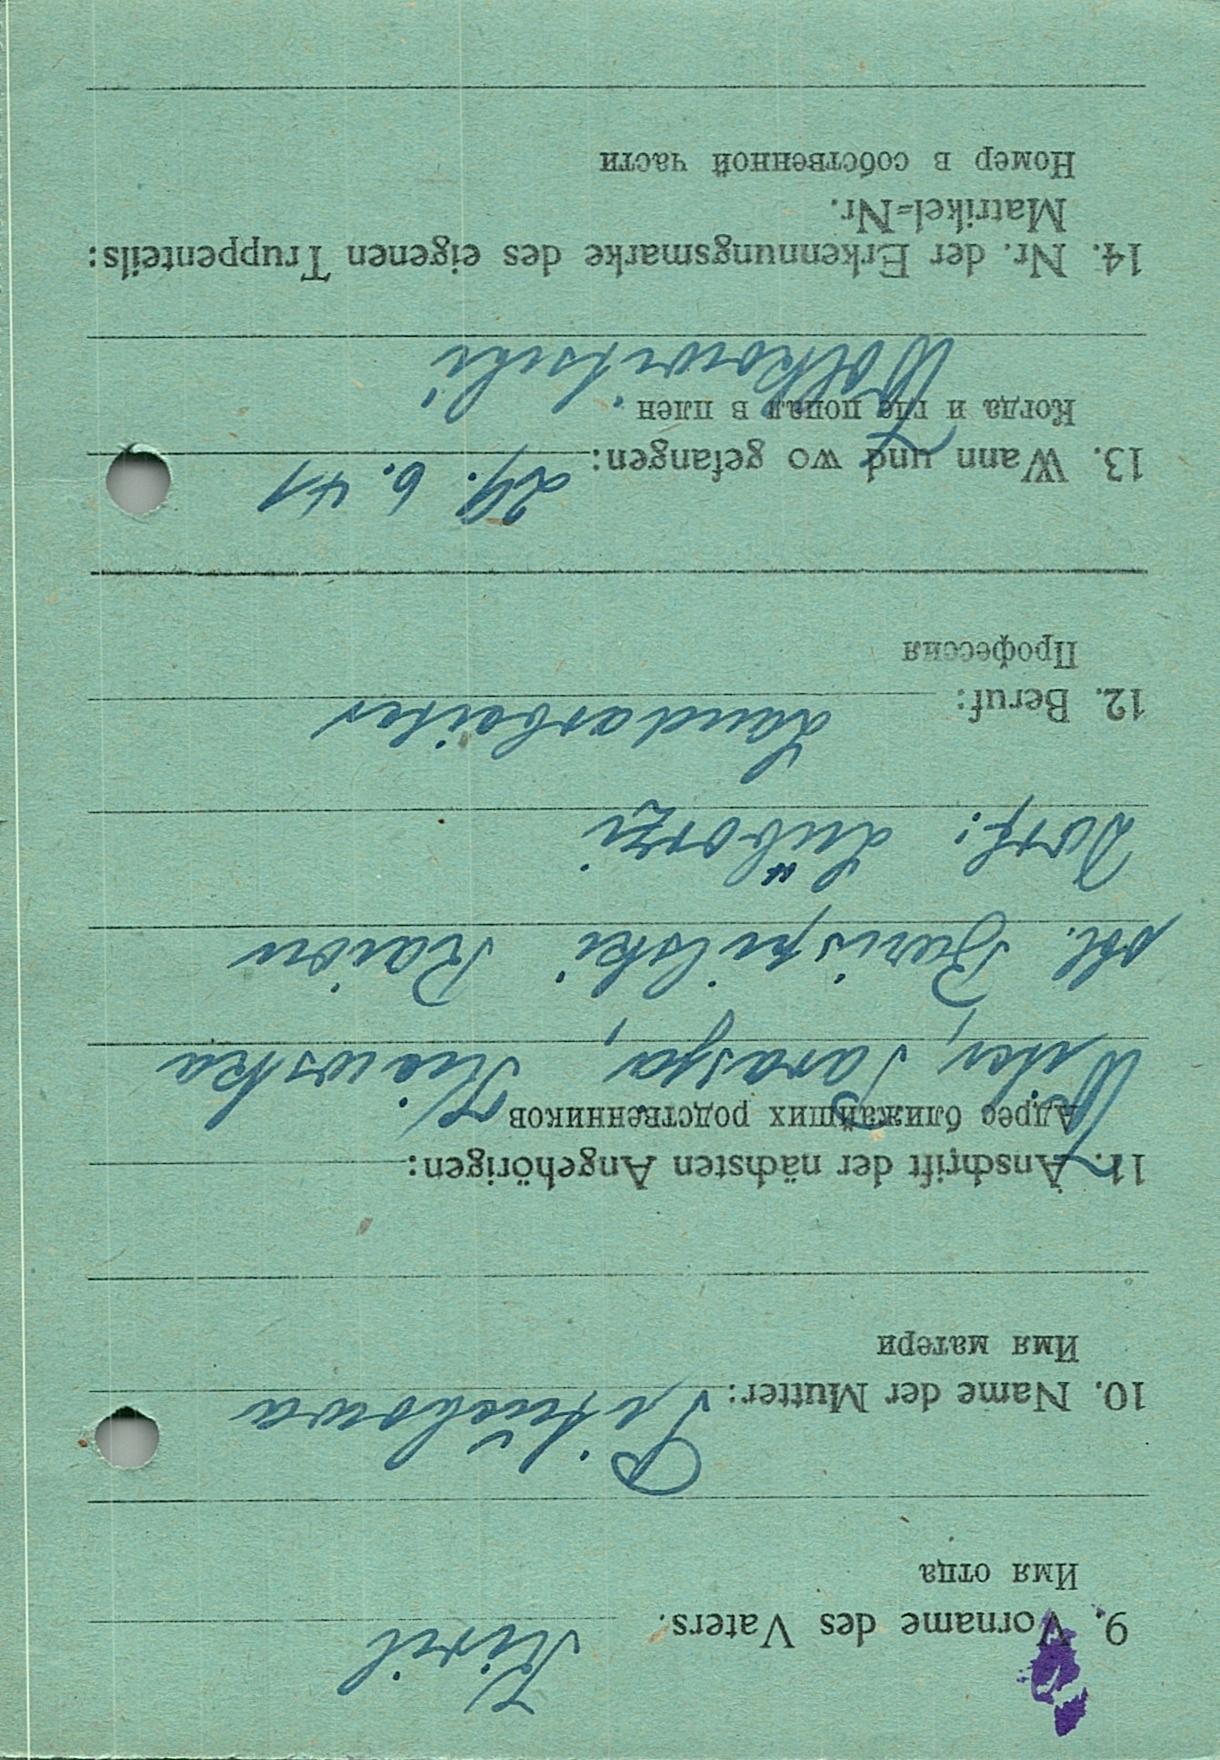 9. Vorname des Vaters: Kiril
Имя отца
10. Name der Mutter:
Имя матери
11. Anschrift der nächsten Angehörigen:
Адрес ближайших родственников
Kiewska
obl. Barispilski Raion
Dorf: Lüborzi
12. Beruf: Landarbeiter
Профессия
13. Wann und wo gefangen: 29. 6. 41
Когда и где попал в плен
Wolkowitschi
14. Nr. der Erkennungsmarke des eigenen Truppenteils:
Matrikel=Nr.
Номер в собственной части